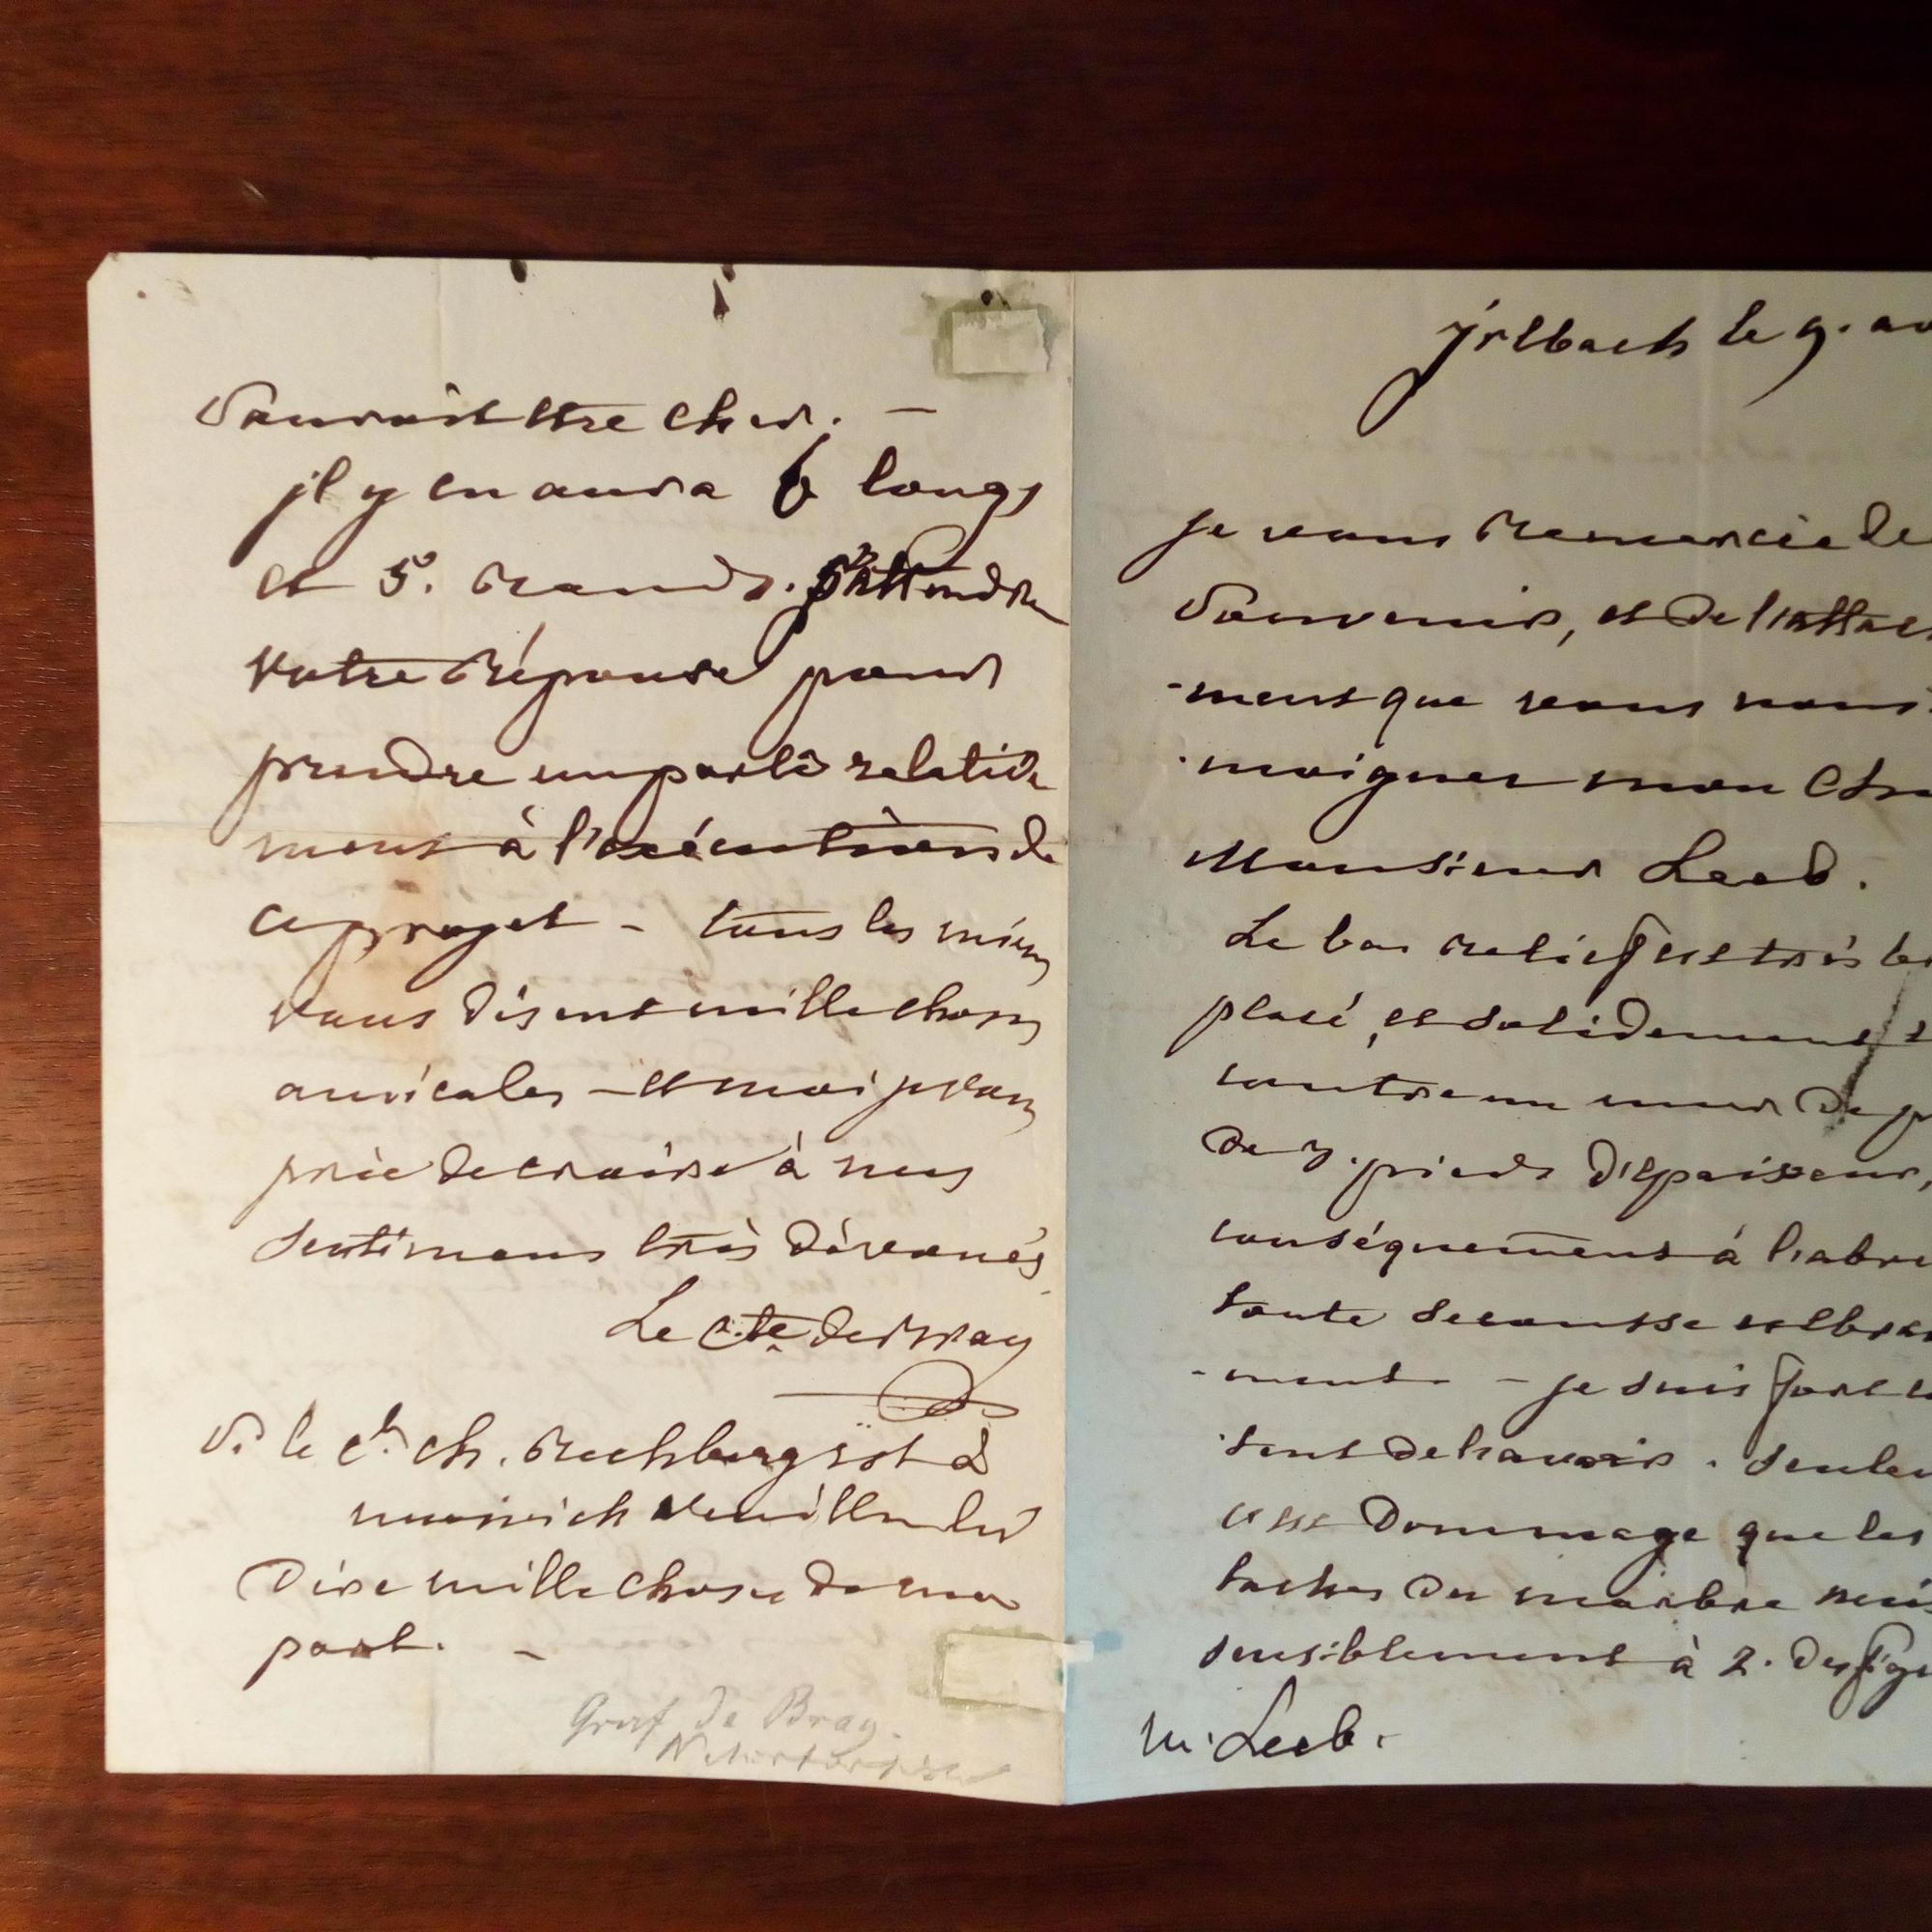 sauroit être cher. —
il y en aura 6 longs
et 5. ronds. j'attendrai
votre réponse pour
prendre un parti relative
ment à l'exécution de
ce projet - tous les miens
vous disent mille choses
amicales - et moi je vous
prie de croire à mes
sentimens très dévoués
Le Cte. de Bray
S. le Ct. Ch. Rechberg est à
munich veuillez lui
dire mille choses de ma
part. —
Graf de Bray.
jrlbach le 9. av
je vous remercie de
souvenir, et de l'attache
-ment que vous nous
-moignez mon cher
Monsieur Leeb.
Le bas relief est très bi
placé, et solidement
contre un mur de p
de 3. pieds d'épaisseur,
conséquemment à l'abri
toute secousse et ebran
-ment. - je suis fort c
-tent de l'avoir. seulem
c'est dommage que les
taches du marbre nuis
sensiblement à 2. des fig
M. Leeb.